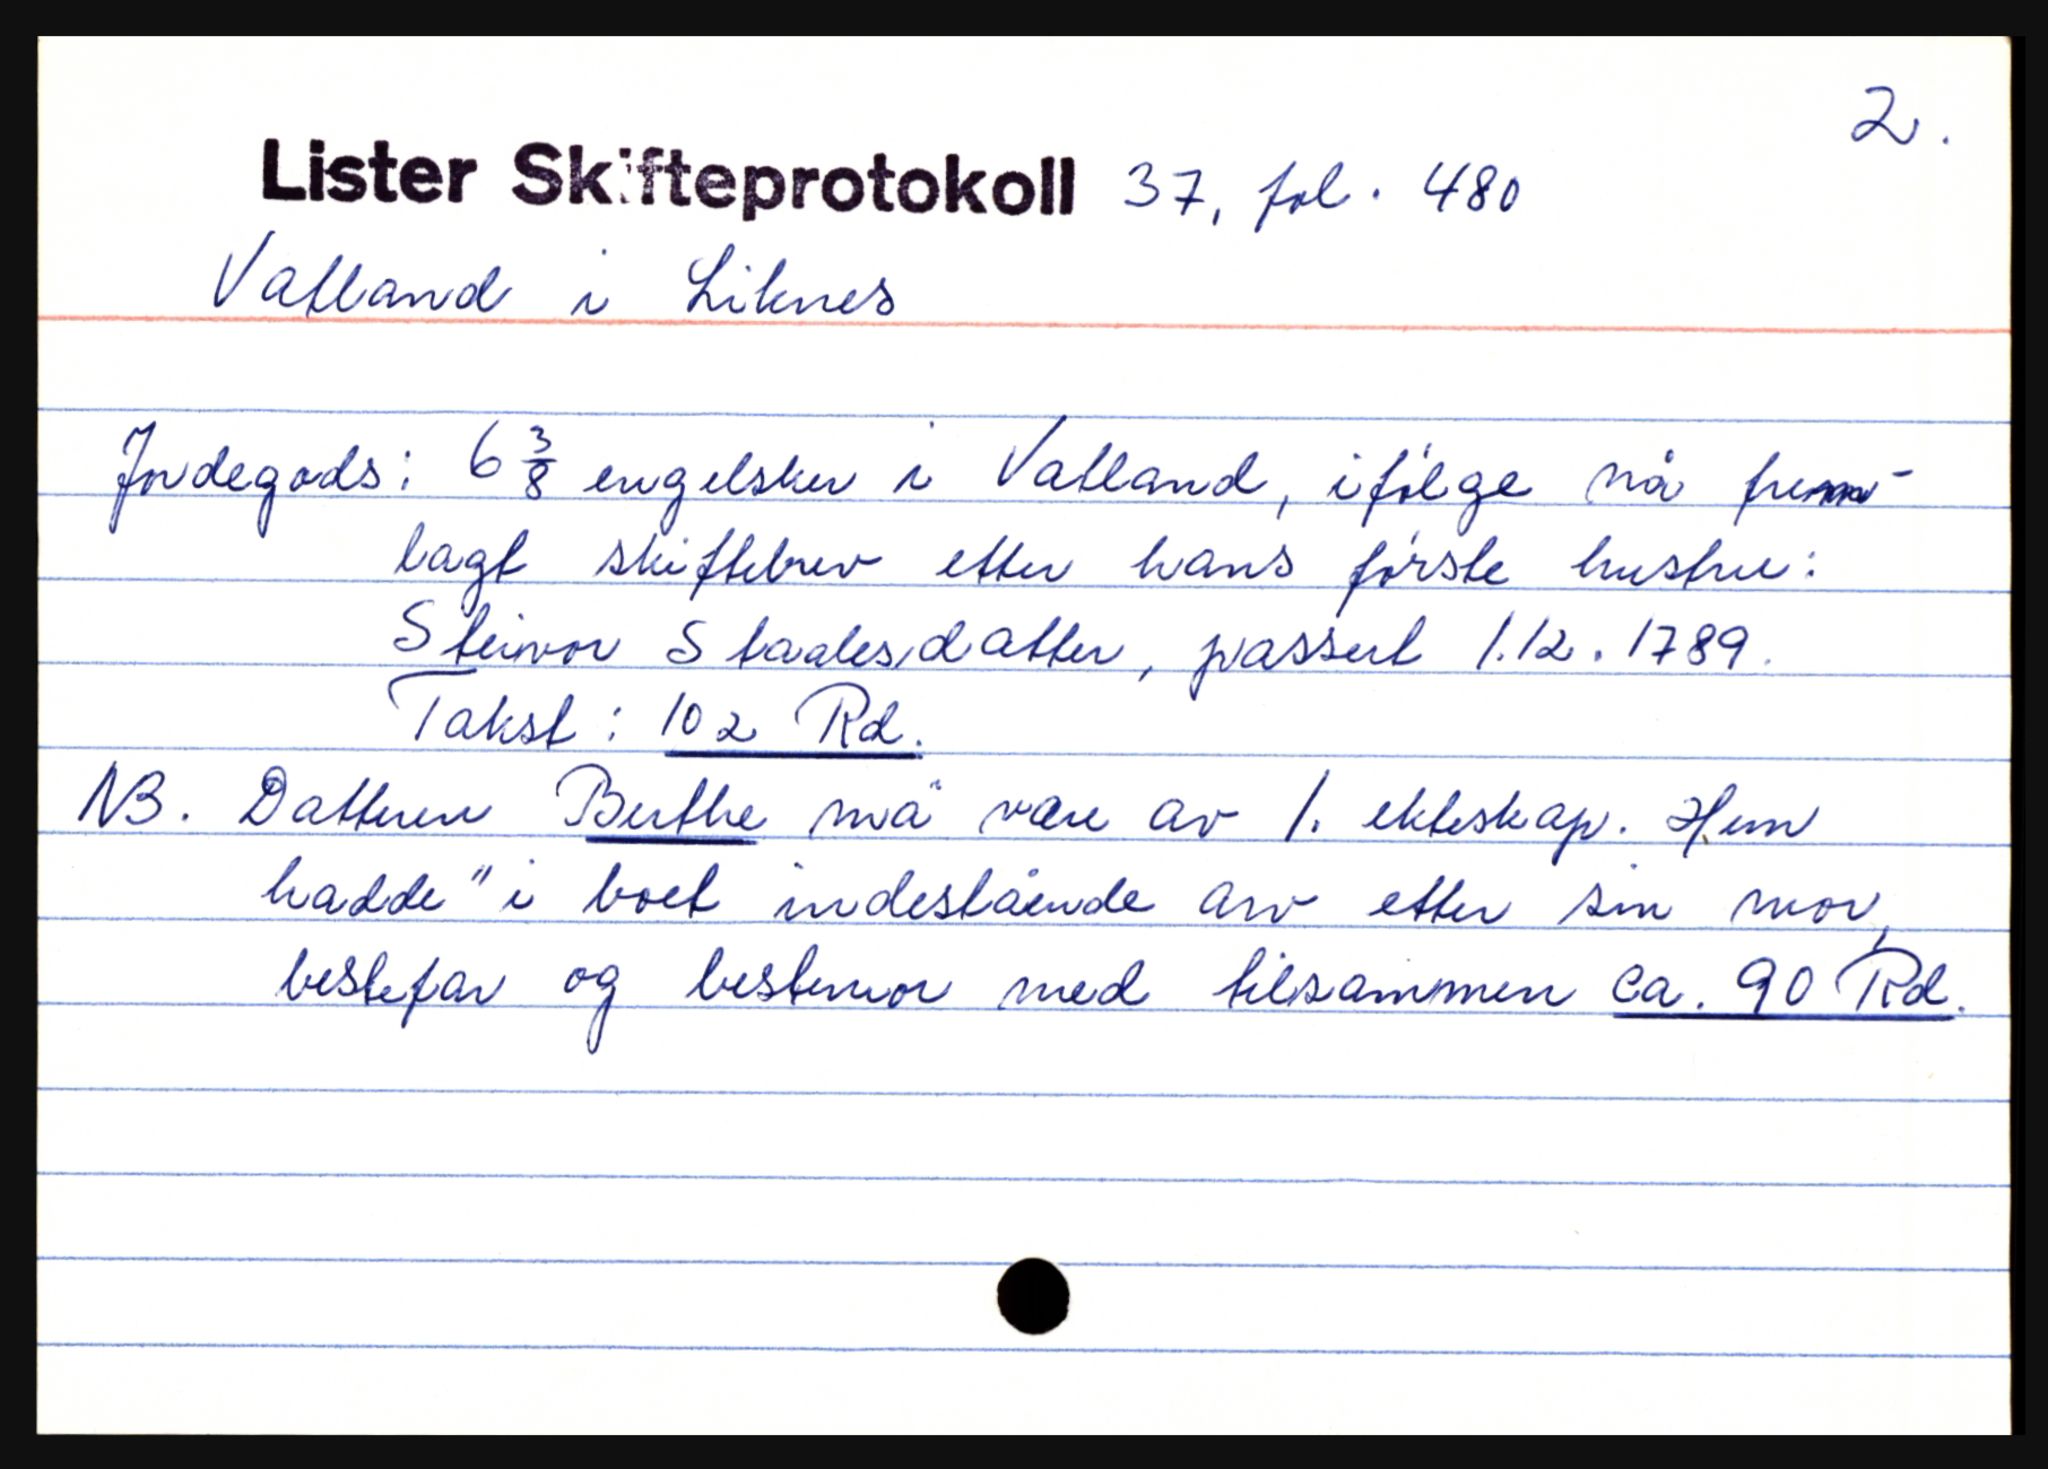 2.
Lister Skifteprotokoll 37, fol. 480
Vatland i Liknes
Jordegods: 6 3/8 engelsker i Vatland, ifølge nå frem-
lagt skiftebrev etter hans første hustru:
Steinvor Staalesdatter, passert 1.12.1789.
Takst: 102 Rd.
NB. Datteren Berthe må være av 1. ekteskap. Hun
hadde "i boet indestående arv etter sin mor,
bestefar og bestemor med tilsammen ca. 90 Rd.